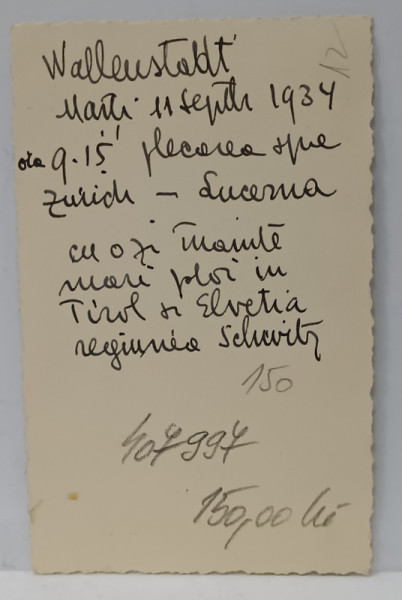 12
Wallenstadt
Marti 11 Septb 1934
ora 9.15' plecarea spre
Zürich – Lucerna
cu o zi inainte
mari ploi in
Tirol si Elvetia
regiunea Schwitz
150
407997
150,00 lei